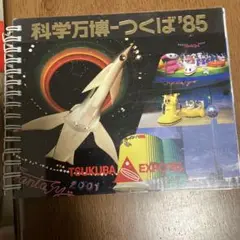 科学万博-つくば'85
TSUKUBA EXPO'85
Fantasy
2001